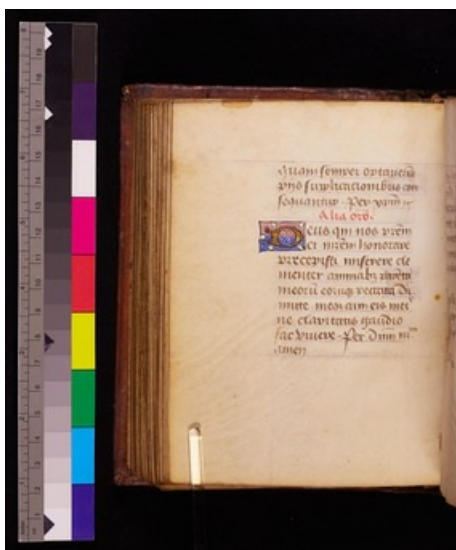 quam semper optaverūt
piis supplicationibus con
sequantur. Per xpm̄
Alia oro.
Deus qui nos prēm
et mr̄em honorare
precepisti miserere cle
menter animab3 parentū
meorū eorūq3 peccata di
mitte meq3 cum eis in eter
ne claritatis gaudio
fac vivere. Per Dnm̄ nr̄m
amen